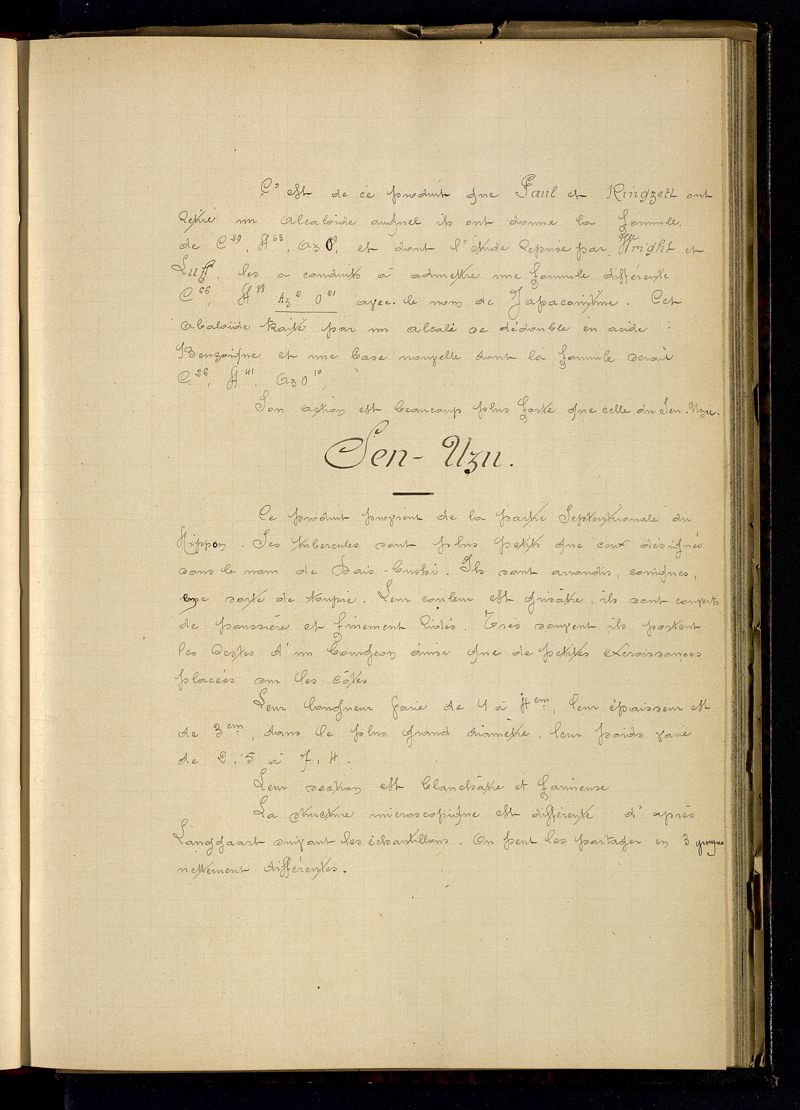 C'est de ce produit que Paul et Kingzett ont
retiré un alcaloïde auquel ils ont donné la formule
de C²⁹, H⁶³, Az O⁹, et dont l'étude reprise par Wright et
Luff, les a conduits à admettre une formule différente
C⁶⁶, H⁸⁹ Az² O²¹ avec le nom de Japaconitine. Cet
alcaloïde traité par un alcali se dédouble en acide
Benzoïque et une base nouvelle dont la formule serait
C²⁶, H⁴¹, Az O¹⁰,
Son action est beaucoup plus forte que celle du Sen-Uzu.
Sen-Uzu.
Ce produit provient de la partie Septentrionale du
Nippon. Ses tubercules sont plus petits que ceux désignés
sous le nom de Dais-Bushi. Ils sont arrondis, coniques,
sorte de toupie. Leur couleur est grisâtre, ils sont couverts
de poussière et finement ridés. Très souvent ils portent
les restes d'un bourgeon ainsi que de petites excroissances
placées sur les côtés
Leur longueur varie de 1 à 4ᶜᵐ, leur épaisseur est
de 3ᶜᵐ, dans le plus grand diamètre, leur poids varie
de 2,5 à 7,4.
Leur section est blanchâtre et farineuse
La structure microscopique est différente d'après
Langgaart suivant les échantillons. On peut les partager en 3 groupes
nettement différentes.